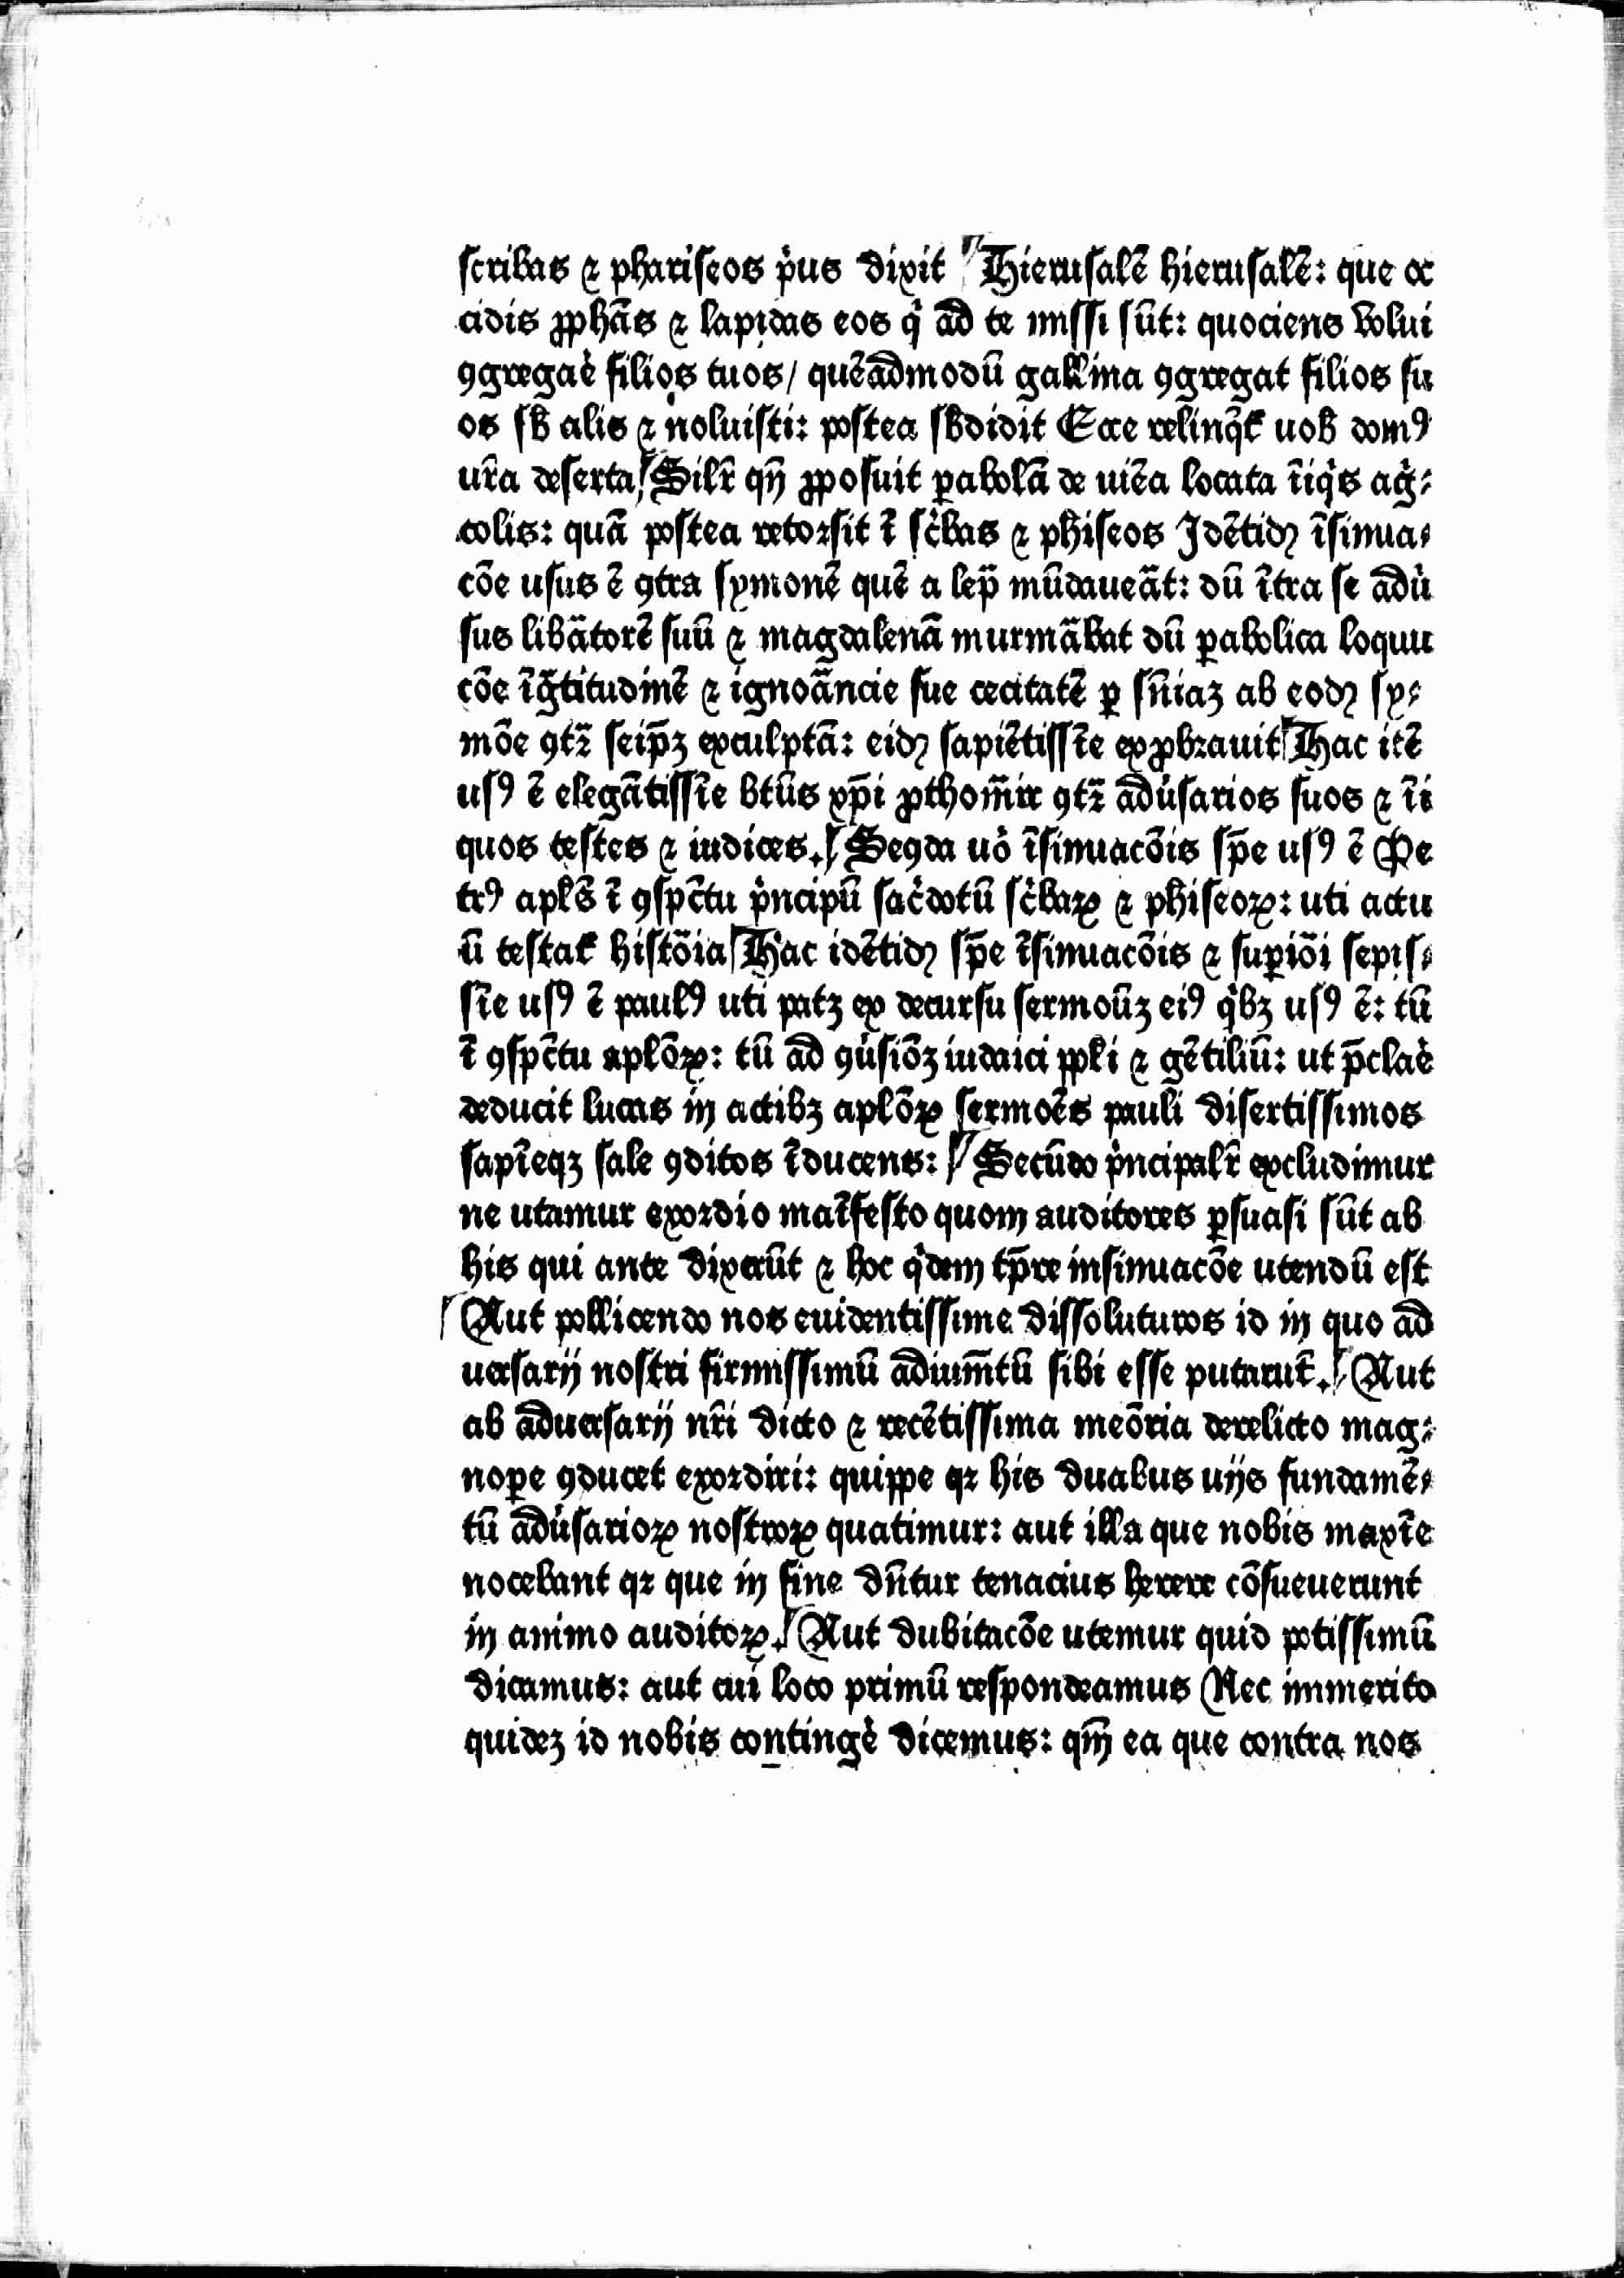 scribas ⁊ phariseos pͥus dixit Hierusalē hierusalē: que oc
cidis ꝓphās ⁊ lapidas eos qͥ ad te missi sūt: quociens volui
ꝯgregaȇ filios tuos / quēadmodū gallina ꝯgregat filios su
os sb̄ alis ⁊ noluisti: postea sb̄didit Ecce relinqͥt̄ uob̄ domꝰ
ur̄a deserta Silr̄ qn̄ ꝓposuit ꝑabolā de uiēa locata īiqͥs agͥ⸗
colis: quā postea retorsit ī scͥbas ⁊ phiseos Idētidꝫ īsinua⸗
cōe usus ē ꝯtra symonē quē a lep̄ mūdaueāt: dū ītra se adu̓
sus libātorē suū ⁊ magdalenā murmābat dū ꝑabolica loquu
cōe īgᷓtitudinē ⁊ ignoāncie sue cecitatē ꝑ sn̄iaꝫ ab eodꝫ sy⸗
mōe ꝯtᷓ seip̄ꝫ exculptā: eidꝫ sapiētissīe exꝓbrauit Hac itē
usꝰ ē elegātissīe btūs xp̄i ꝓthom̄ir ꝯtᷓ adu̓sarios suos ⁊ īi
quos testes ⁊ iudices. Seꝯda uo̊ īsinuacōis sp̄e usꝰ ē Pe
trꝰ apl̄s ī ꝯspc̄tu pͥncipū sac̓dotū scͥbaꝝ ⁊ phiseoꝝ: uti actu
ū testat̄ histōia Hac idētidꝫ sp̄e īsinuacōis ⁊ suꝑiōi sepis⸗
sīe usꝰ ē paulꝰ uti patꝫ ex decursu sermoūꝫ eiꝰ qͥbꝫ usꝰ ē: tū
ī ꝯspc̄tu aplōꝝ: tū ad ꝯu̓siōꝫ iudaici ppl̄i ⁊ gētiliū: ut p̄claȇ
deducit lucas in actibꝫ aplōꝝ sermoēs pauli disertissimos
sapīeqꝫ sale ꝯditos īducens: Secūdo pͥncipalr̄ excludimur
ne utamur exordio maīfesto quom auditores ꝑsuasi sūt ab
his qui ante dixerūt ⁊ hoc qͥdem tp̄re insinuacōe utendū est
Aut pollicendo nos euidentissime dissoluturos id in quo ad
uersarij nostri firmissimū adium̄tū sibi esse putarūt. Aut
ab aduersarij nr̄i dicto ⁊ recētissima meōria derelicto mag⸗
noꝑe ꝯducet exordiri: quippe qꝛ his duabus uijs fundamē⸗
tū adu̓sarioꝝ nostroꝝ quatimur: aut illa que nobis maxīe
nocebant qꝛ que in fine dn̄tur tenacius herere cōsueuerunt
in animo auditoꝝ. Aut dubitacōe utemur quid potissimū
dicamus: aut cui loco primū respondeamus Nec immerito
quidez id nobis contingȇ dicemus: qm̄ ea que contra nos